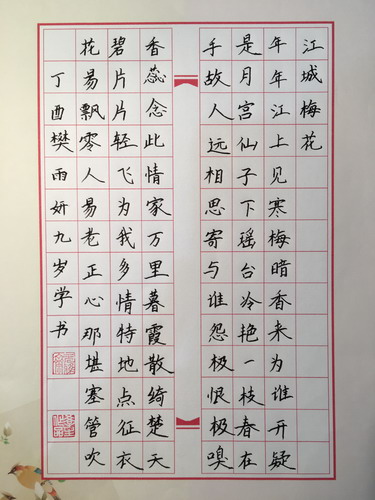 江城梅花
年年江上见寒梅暗香来为谁开疑
是月宫仙子下瑶台冷艳一枝春在
手故人远相思寄与谁怨极恨极嗅
香蕊念此情家万里暮霞散绮楚天
碧片片轻飞为我多情特地点征衣
花易飘零人易老正心那堪塞管吹
丁酉樊雨妍九岁学书